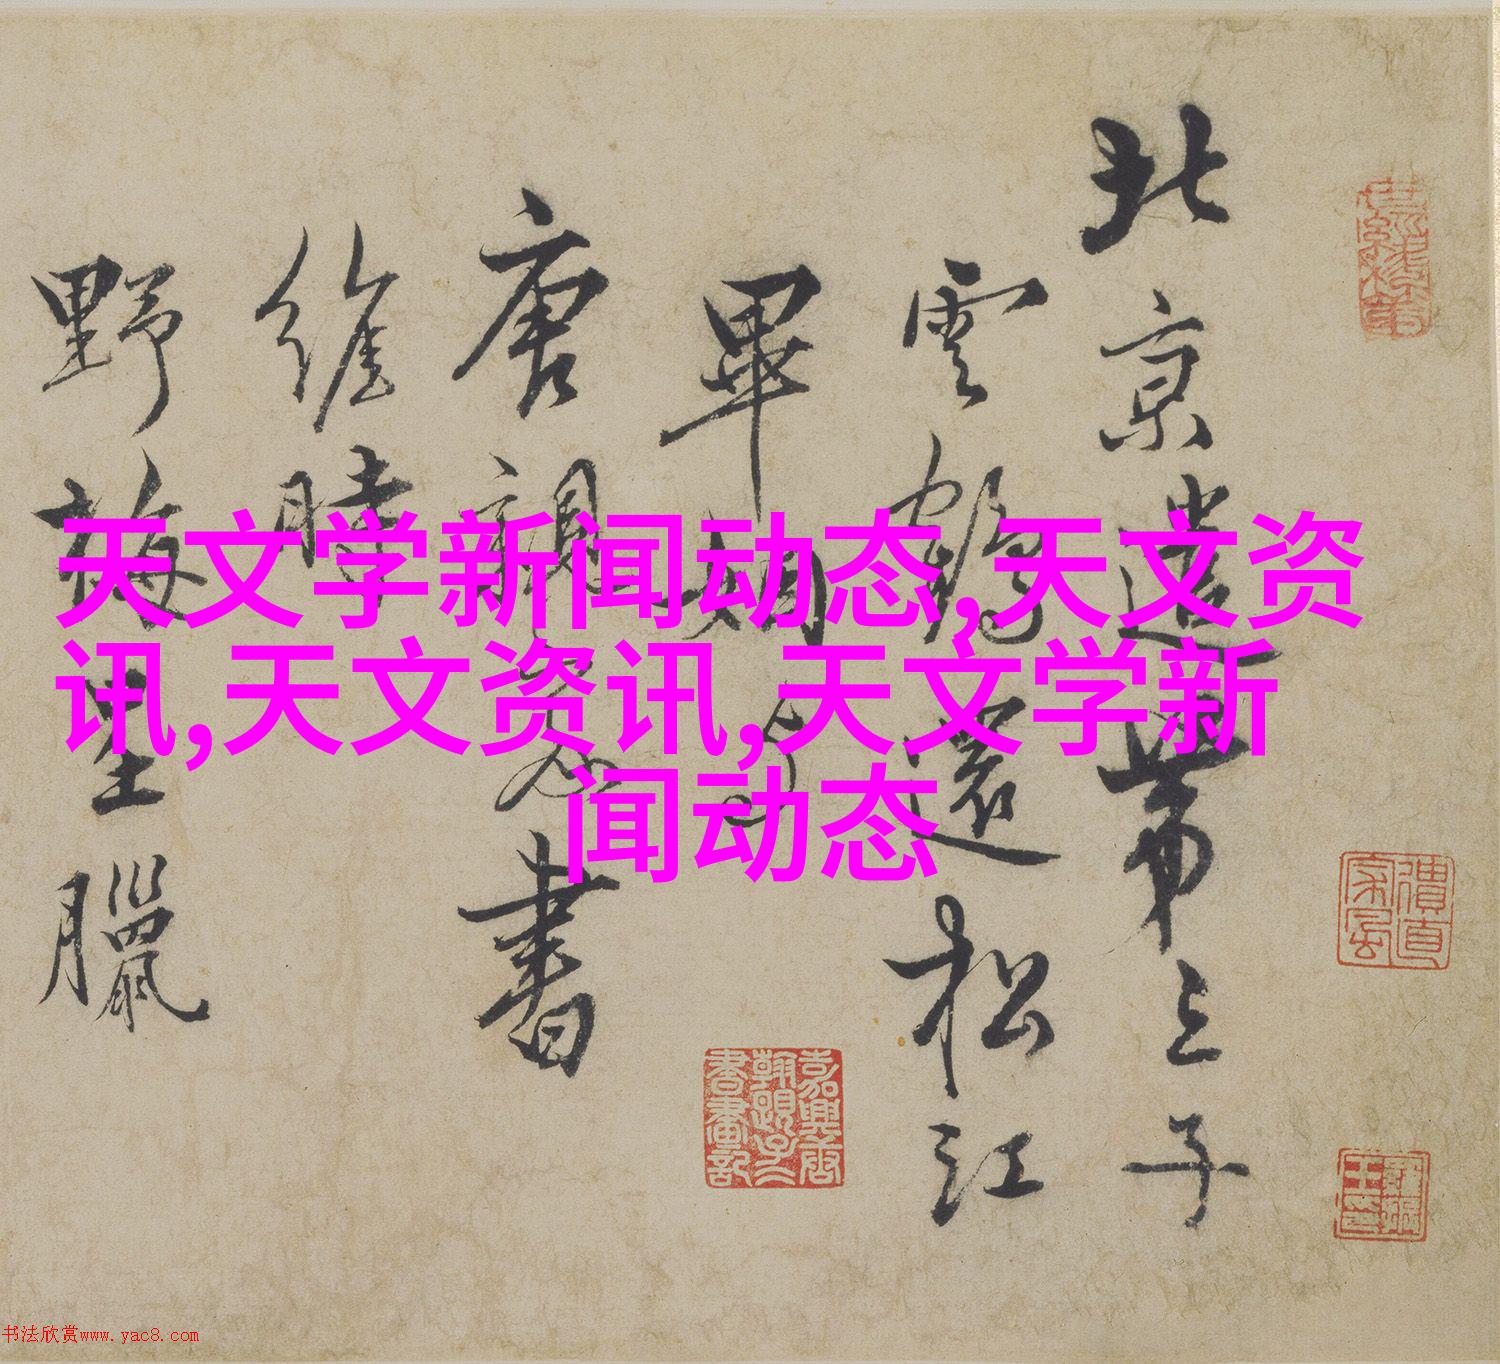 天文学新闻动态,天文资
讯,天文资讯,天文学新
闻动态
北京遣第三子
雲鶴還松江
畢姻
唐親書
維時
野梅臘
书法欣赏www.yac8.com